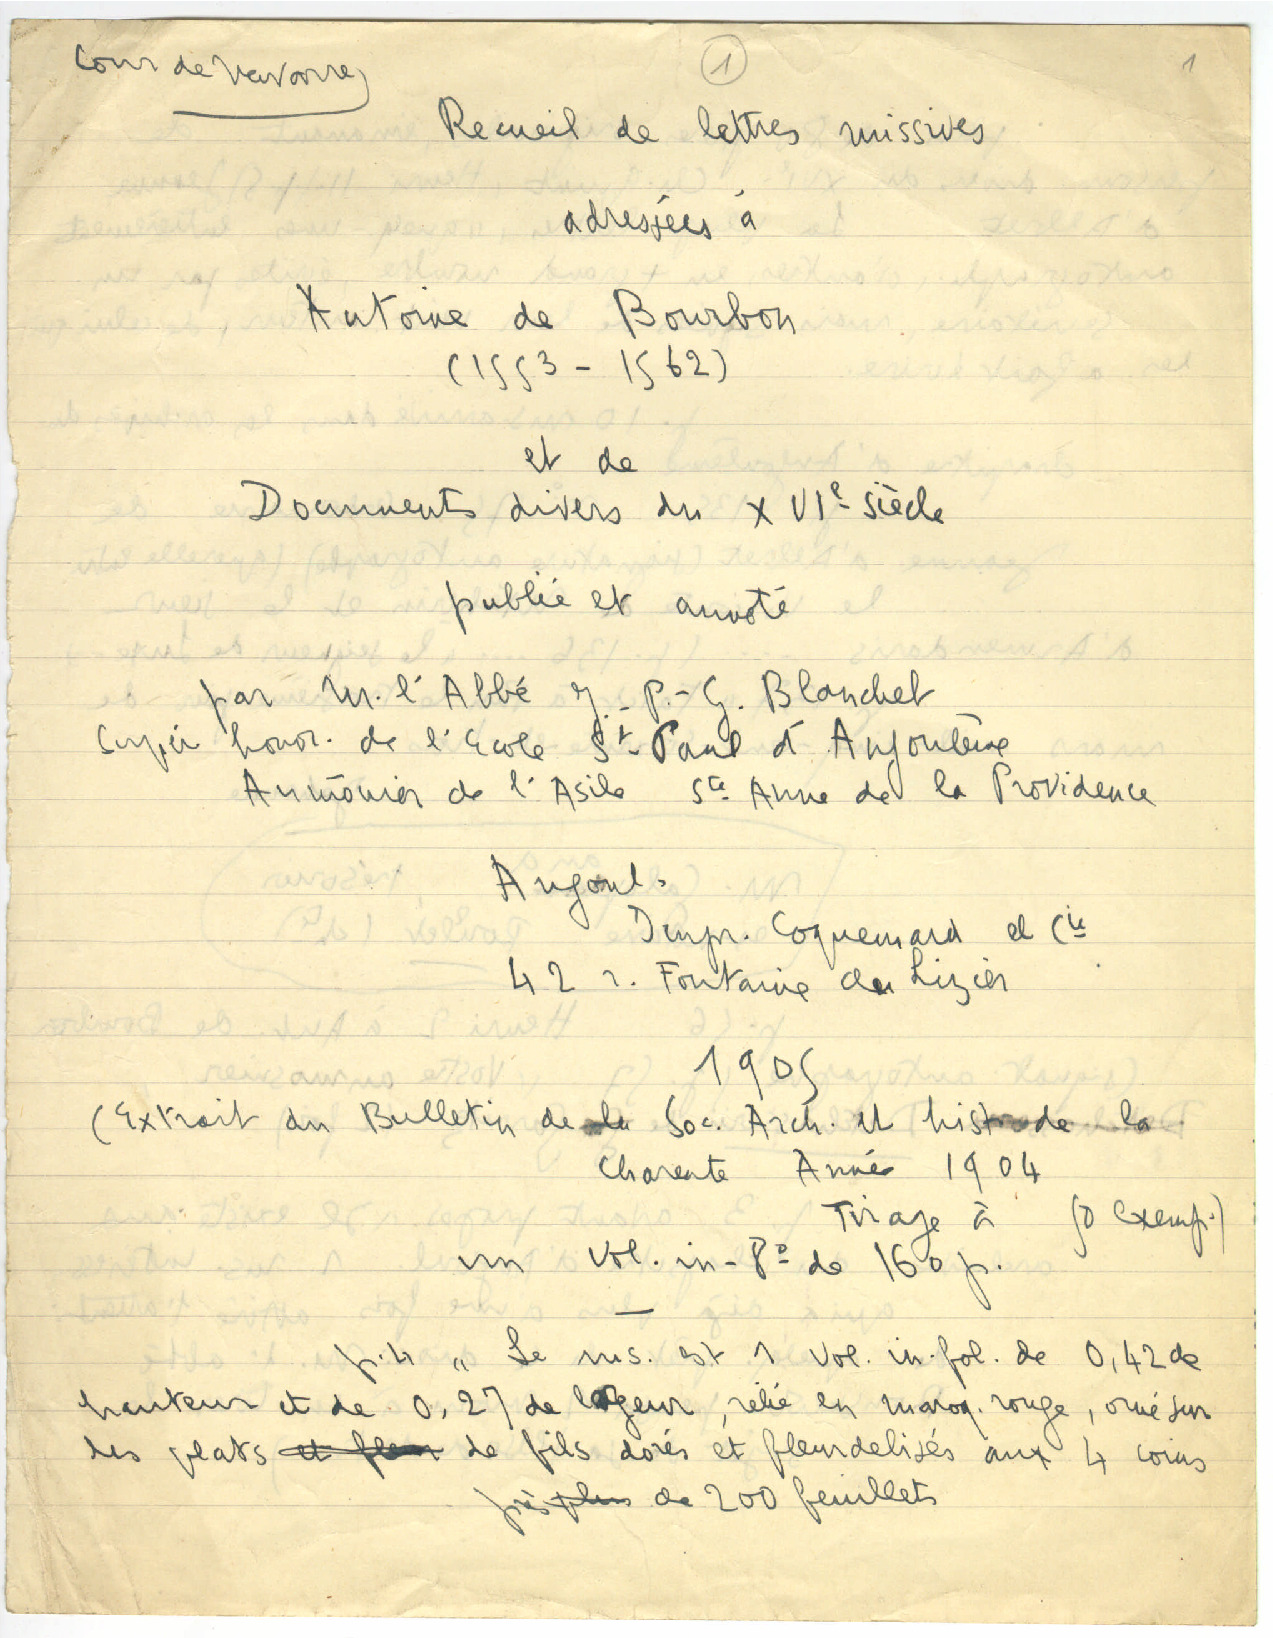 Cour de Navarre
1
1
Recueil de lettres missives
adressées à
Antoine de Bourbon
(1553 - 1562)
et de
Documents divers du XVIe siècle
publié et annoté
par M. l'Abbé J.-P.-G. Blanchet
Supér honor. de l'Ecole St-Paul d'Angoulême
Aumônier de l'Asile Ste Anne de la Providence
Angoul.
Impr. Coquemard et Cie
42 r. Fontaine du Lizier
1905
(Extrait du Bulletin de la Soc. Arch. et hist de la
Charente Année 1904
Tirage à 50 exemp.)
un vol. in-8º de 160 p.
p.4 " Le ms. est 1 vol. in-fol. de 0,42 de
hauteur et de 0,27 de largeur, relié en maroq. rouge, orné sur
les plats et fleur de fils dorés et fleurdelisés aux 4 coins
près plus de 200 feuillets